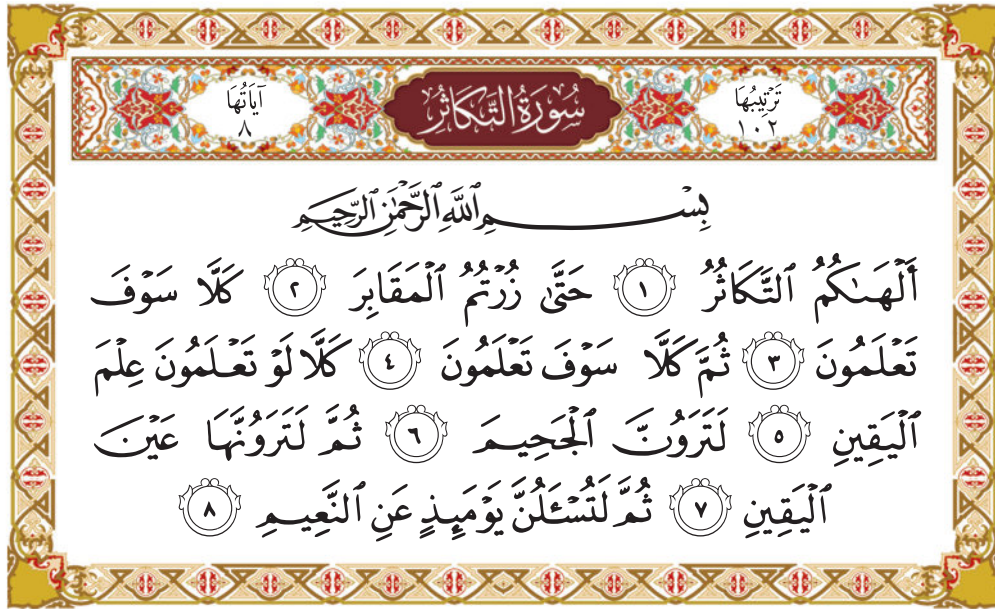 تَرْتِيبُهَا ١٠٢
سُورَةُ التَّكَاثُرِ
آيَاتُهَا ٨
بِسْمِ ٱللَّهِ ٱلرَّحْمَٰنِ ٱلرَّحِيمِ
أَلْهَىٰكُمُ ٱلتَّكَاثُرُ ١ حَتَّىٰ زُرْتُمُ ٱلْمَقَابِرَ ٢ كَلَّا سَوْفَ
تَعْلَمُونَ ٣ ثُمَّ كَلَّا سَوْفَ تَعْلَمُونَ ٤ كَلَّا لَوْ تَعْلَمُونَ عِلْمَ
ٱلْيَقِينِ ٥ لَتَرَوُنَّ ٱلْجَحِيمَ ٦ ثُمَّ لَتَرَوُنَّهَا عَيْنَ
ٱلْيَقِينِ ٧ ثُمَّ لَتُسْـَٔلُنَّ يَوْمَئِذٍ عَنِ ٱلنَّعِيمِ ٨